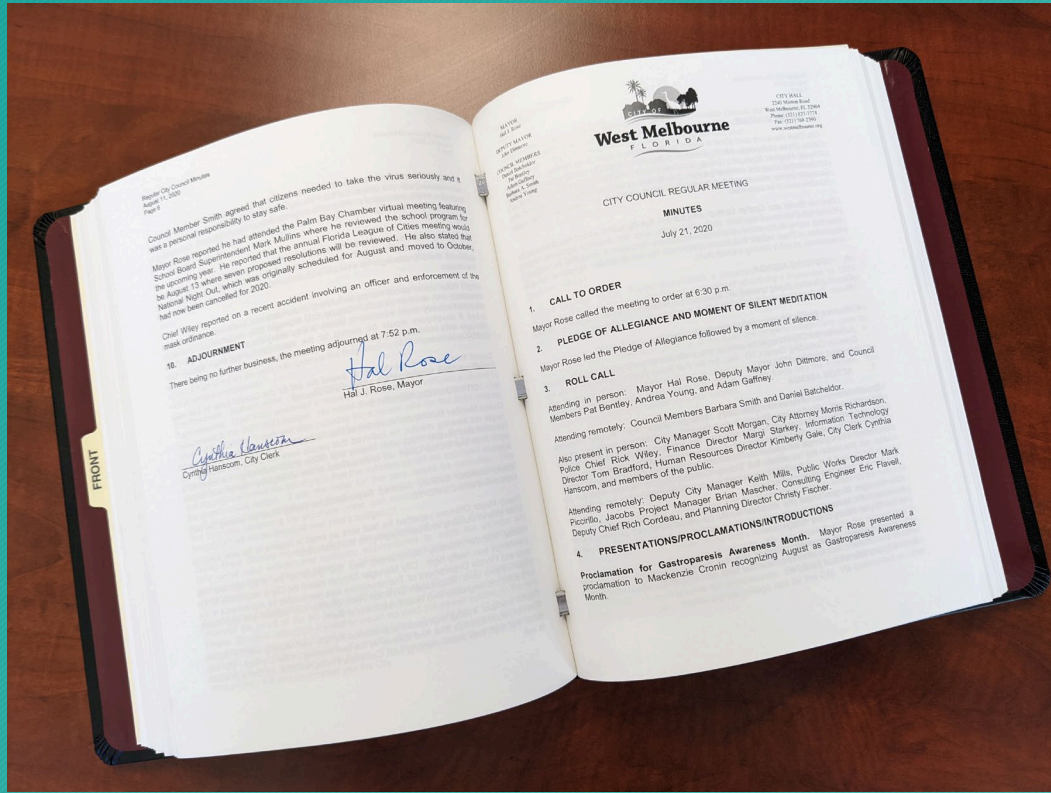 Regular City Council Minutes
August 11, 2020
Page 6
Council Member Smith agreed that citizens needed to take the virus seriously and it
was a personal responsibility to stay safe.
Mayor Rose reported he had attended the Palm Bay Chamber virtual meeting featuring
School Board Superintendent Mark Mullins where he reviewed the school program for
the upcoming year. He reported that the annual Florida League of Cities meeting would
be August 13 where seven proposed resolutions will be reviewed. He also stated that
National Night Out, which was originally scheduled for August and moved to October,
had now been cancelled for 2020.
Chief Wiley reported on a recent accident involving an officer and enforcement of the
mask ordinance.
10. ADJOURNMENT
There being no further business, the meeting adjourned at 7:52 p.m.
Hal Rose
Hal J. Rose, Mayor
Cynthia Hanscom
Cynthia Hanscom, City Clerk
FRONT
MAYOR
Hal J. Rose
DEPUTY MAYOR
John Dittmore
COUNCIL MEMBERS
Daniel Batcheldor
Pat Bentley
Adam Gaffney
Barbara A. Smith
Andrea Young
CITY OF
West Melbourne
FLORIDA
CITY HALL
2240 Minton Road
West Melbourne, FL 32904
Phone: (321) 837-7774
Fax: (321) 768-2390
www.westmelbourne.org
CITY COUNCIL REGULAR MEETING
MINUTES
July 21, 2020
1. CALL TO ORDER
Mayor Rose called the meeting to order at 6:30 p.m.
2. PLEDGE OF ALLEGIANCE AND MOMENT OF SILENT MEDITATION
Mayor Rose led the Pledge of Allegiance followed by a moment of silence.
3. ROLL CALL
Attending in person: Mayor Hal Rose, Deputy Mayor John Dittmore, and Council
Members Pat Bentley, Andrea Young, and Adam Gaffney.
Attending remotely: Council Members Barbara Smith and Daniel Batcheldor.
Also present in person: City Manager Scott Morgan, City Attorney Morris Richardson,
Police Chief Rick Wiley, Finance Director Margi Starkey, Information Technology
Director Tom Bradford, Human Resources Director Kimberly Gale, City Clerk Cynthia
Hanscom, and members of the public.
Attending remotely: Deputy City Manager Keith Mills, Public Works Director Mark
Piccirillo, Jacobs Project Manager Brian Mascher, Consulting Engineer Eric Flavell,
Deputy Chief Rich Cordeau, and Planning Director Christy Fischer.
4. PRESENTATIONS/PROCLAMATIONS/INTRODUCTIONS
Proclamation for Gastroparesis Awareness Month. Mayor Rose presented a
proclamation to Mackenzie Cronin recognizing August as Gastroparesis Awareness
Month.